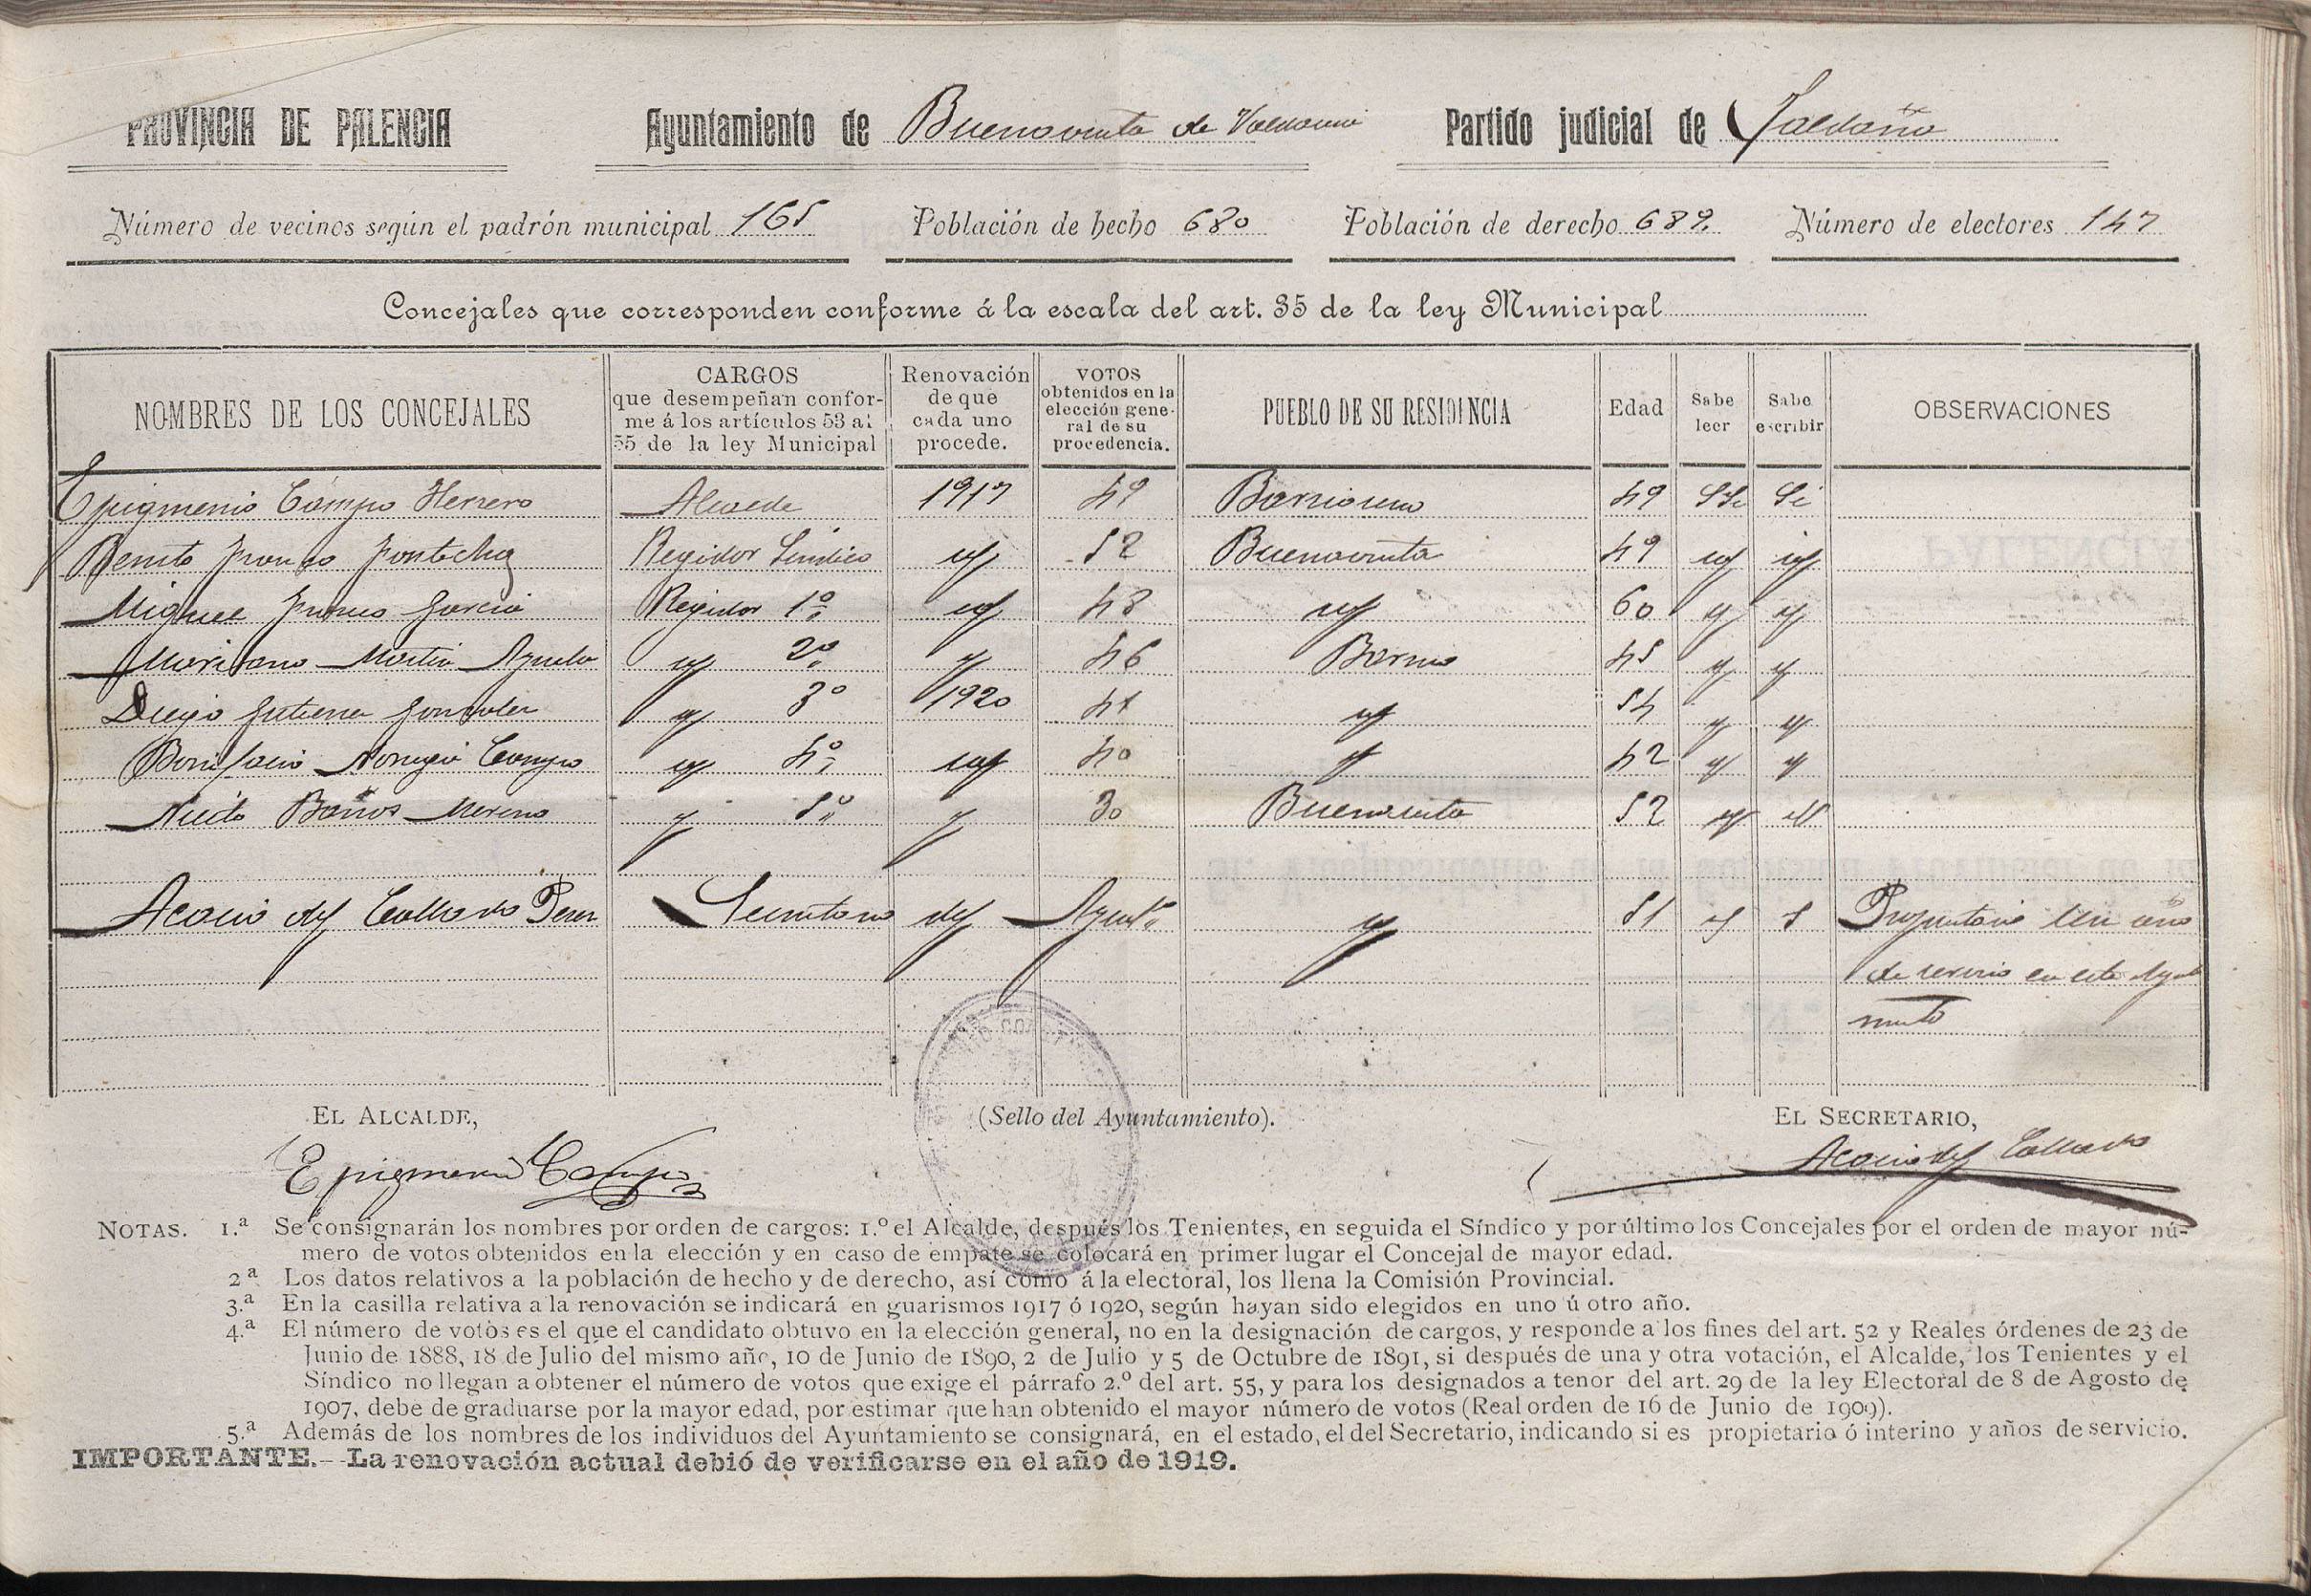 PROVINCIA DE PALENCIA Ayuntamiento de Buenavista de Valdavia Partido judicial de Saldaña
Número de vecinos según el padrón municipal 165 Población de hecho 680 Población de derecho 689. Número de electores 147
Concejales que corresponden conforme á la escala del art. 35 de la ley Municipal
NOMBRES DE LOS CONCEJALES
CARGOS
que desempeñan confor-
me á los artículos 53 al
55 de la ley Municipal
Renovación
de que
cada uno
procede.
VOTOS
obtenidos en la
elección gene-
ral de su
procedencia.
PUEBLO DE SU RESIDENCIA
Edad
Sabe
leer
Sabe
escribir
OBSERVACIONES
Epigmenio Campo Herrero Alcalde 1917 49 49 Si Si
Benito Franco Fontecha Regidor Sindico 52 Buenavista 49
Miguel Franco Garcia Regidor 1º 48 60
Mariano Martin 2º 46 Barrio 45
Diego Gutierrez Gonzalez 3º 1920 41 54
Bonifacio Campo 4º 40 42
Baños Moreno 5º 30 Buenavista 52
Acacio del Collado Perez Secretario del Ayunto 51 Propietario un año
de servicio en este Ayunta
miento
EL ALCALDE, (Sello del Ayuntamiento). EL SECRETARIO,
Epigmenio Campo Acacio del Collado
NOTAS. 1.ª Se consignarán los nombres por orden de cargos: 1.º el Alcalde, después los Tenientes, en seguida el Síndico y por último los Concejales por el orden de mayor nú-
mero de votos obtenidos en la elección y en caso de empate se colocará en primer lugar el Concejal de mayor edad.
2ª Los datos relativos a la población de hecho y de derecho, así como á la electoral, los llena la Comisión Provincial.
3.ª En la casilla relativa a la renovación se indicará en guarismos 1917 ó 1920, según hayan sido elegidos en uno ú otro año.
4.ª El número de votos es el que el candidato obtuvo en la elección general, no en la designación de cargos, y responde a los fines del art. 52 y Reales órdenes de 23 de
Junio de 1888, 18 de Julio del mismo año, 10 de Junio de 1890, 2 de Julio y 5 de Octubre de 1891, si después de una y otra votación, el Alcalde, los Tenientes y el
Síndico no llegan a obtener el número de votos que exige el párrafo 2.º del art. 55, y para los designados a tenor del art. 29 de la ley Electoral de 8 de Agosto de
1907, debe de graduarse por la mayor edad, por estimar que han obtenido el mayor número de votos (Real orden de 16 de Junio de 1909).
5.ª Además de los nombres de los individuos del Ayuntamiento se consignará, en el estado, el del Secretario, indicando si es propietario ó interino y años de servicio.
IMPORTANTE.--La renovación actual debió de verificarse en el año de 1919.